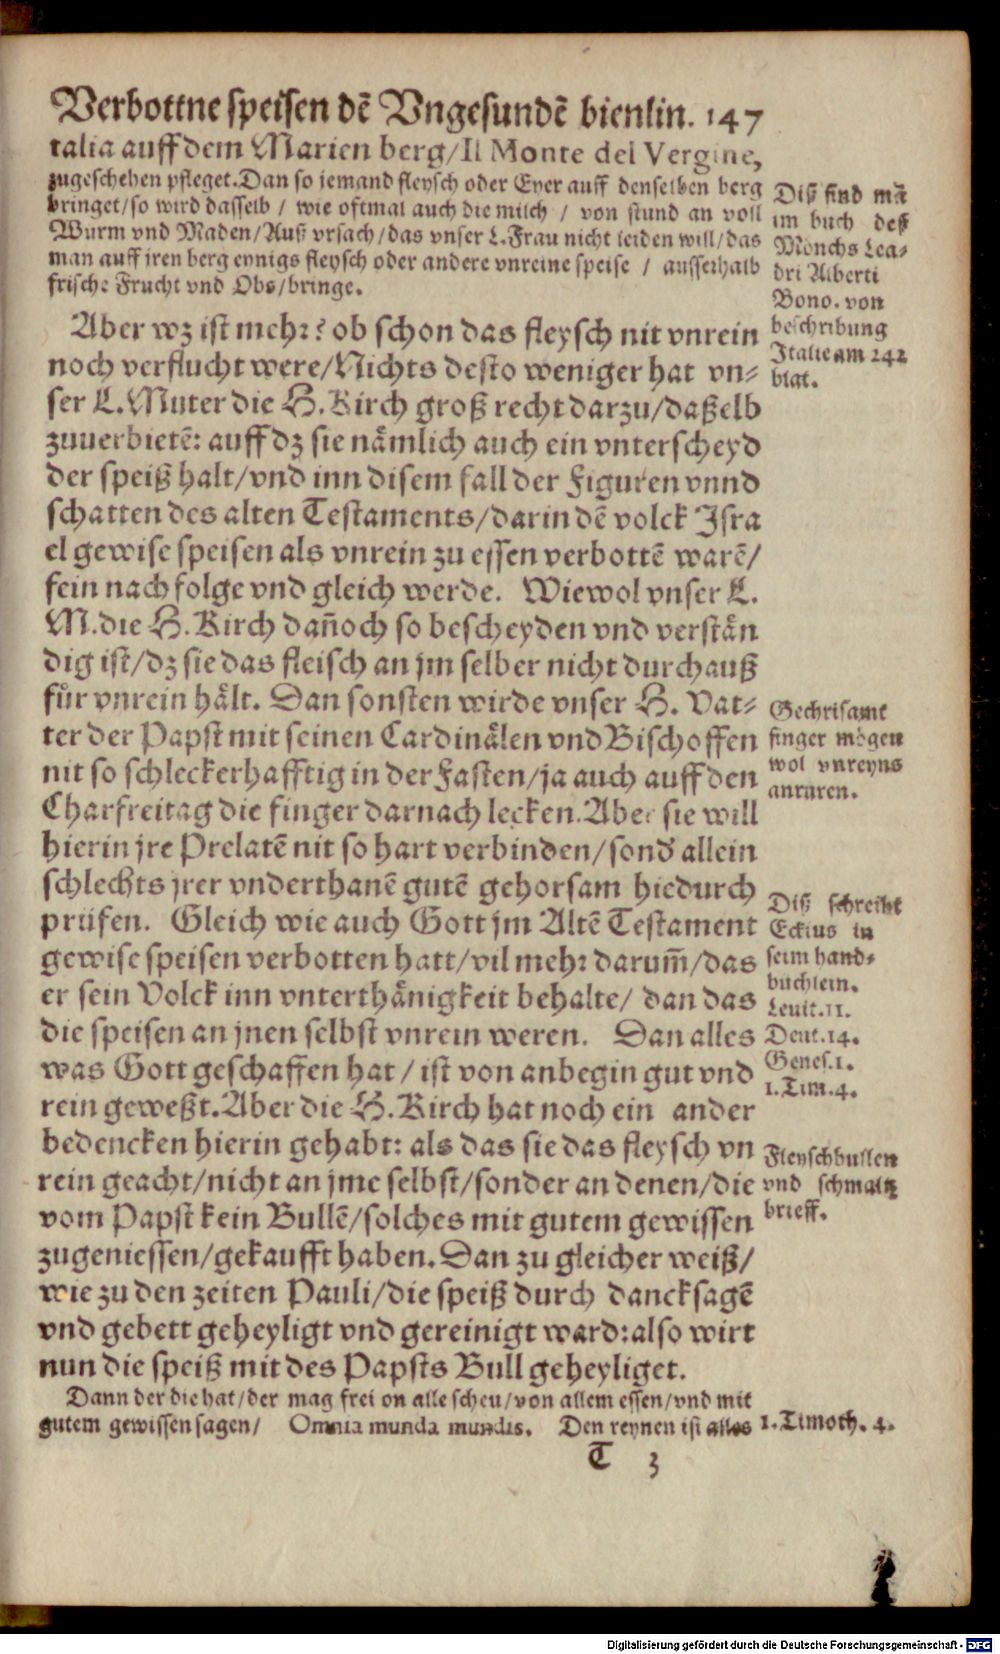 Verbottne speisen dẽ Vngesundẽ bienlin. 147
talia auff dem Marien berg/Il Monte del Vergine,
zugeschehen pfleget. Dan so jemand fleysch oder Eyer auff denselben berg
bringet/so wird dasselb / wie oftmal auch die milch / von stund an voll
Würm vnd Maden/Auß vrsach/das vnser L. Frau nicht leiden will/das
man auff jren berg eynigs fleysch oder andere vnreine speise / ausserhalb
frische Frucht vnd Obs/bringe.
Diß find mã
im buch deß
Mönchs Lea-
dri Alberti
Bono. von
beschribung
Italie am 242
blat.
Aber wz ist mehr? ob schon das fleysch nit vnrein
noch verflucht were/Nichts desto weniger hat vn-
ser L. Muter die H. Kirch groß recht darzu/daßelb
zuuerbietẽ: auff dz sie nämlich auch ein vnterscheyd
der speiß halt/vnd inn disem fall der Figuren vnnd
schatten des alten Testaments/darin dẽ volck Isra
el gewise speisen als vnrein zu essen verbottẽ warẽ/
fein nachfolge vnd gleich werde. Wiewol vnser L.
M. die H. Kirch dañoch so bescheyden vnd verstän
dig ist/dz sie das fleisch an jm selber nicht durchauß
für vnrein hält. Dan sonsten wirde vnser H. Vat-
ter der Papst mit seinen Cardinälen vnd Bischoffen
nit so schleckerhafftig in der Fasten/ja auch auff den
Charfreitag die finger darnach lecken. Aber sie will
hierin jre Prelatẽ nit so hart verbinden/sond' allein
schlechts jrer vnderthanẽ gutẽ gehorsam hiedurch
prüfen. Gleich wie auch Gott jm Altẽ Testament
gewise speisen verbotten hatt/vil mehr darum̃/das
er sein Volck inn vnterthänigkeit behalte/ dan das
die speisen an jnen selbst vnrein weren. Dan alles
was Gott geschaffen hat / ist von anbegin gut vnd
rein geweßt. Aber die H. Kirch hat noch ein ander
bedencken hierin gehabt: als das sie das fleysch vn
rein geacht/nicht an jme selbst/sonder an denen/die
vom Papst kein Bullẽ/solches mit gutem gewissen
zugeniessen/gekaufft haben. Dan zu gleicher weiß/
wie zu den zeiten Pauli/die speiß durch dancksagẽ
vnd gebett geheyligt vnd gereinigt ward: also wirt
nun die speiß mit des Papsts Bull geheyliget.
Gechrisamt
finger mögen
wol vnreyns
anrüren.
Diß schreibt
Eckius in
seim hand-
büchlein.
Leuit. 11.
Deut. 14.
Genes. 1.
1. Tim. 4.
Fleyschbullen
vnd schmaltz
brieff.
Dann der die hat/der mag frei on alle scheu/von allem essen/vnd mit
gutem gewissen sagen/ Omnia munda mundis. Den reynen ist alles
1. Timoth. 4.
T 3
Digitalisierung gefördert durch die Deutsche Forschungsgemeinschaft - DFG